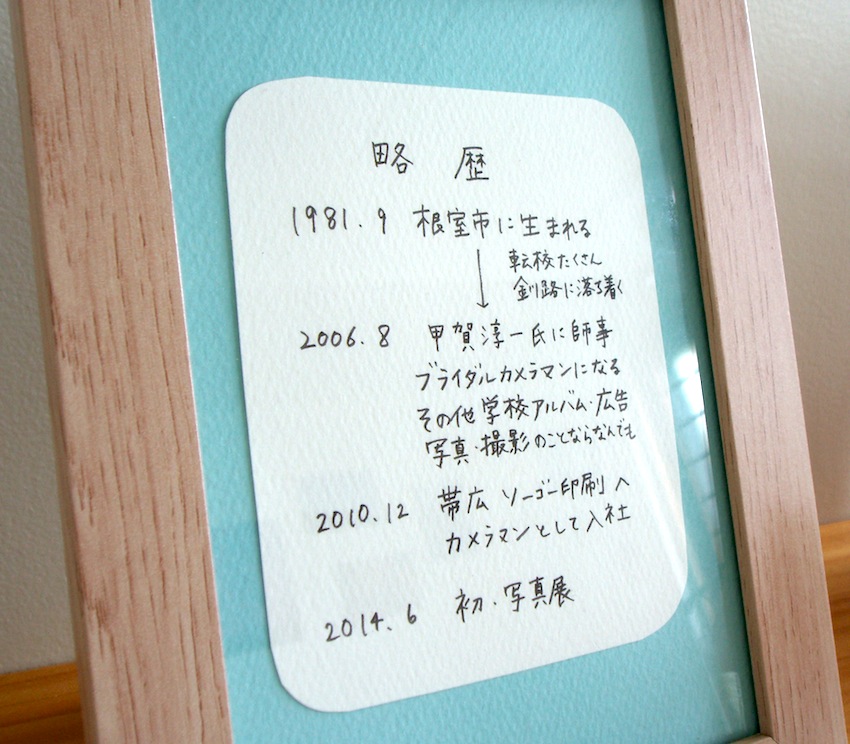 略 歴
1981.9 根室市に生まれる
転校たくさん
釧路に落ち着く
2006.8 甲賀淳一氏に師事
ブライダルカメラマンになる
その他学校アルバム・広告
写真・撮影のことならなんでも
2010.12 帯広 ソーゴー印刷へ
カメラマンとして入社
2014.6 初・写真展